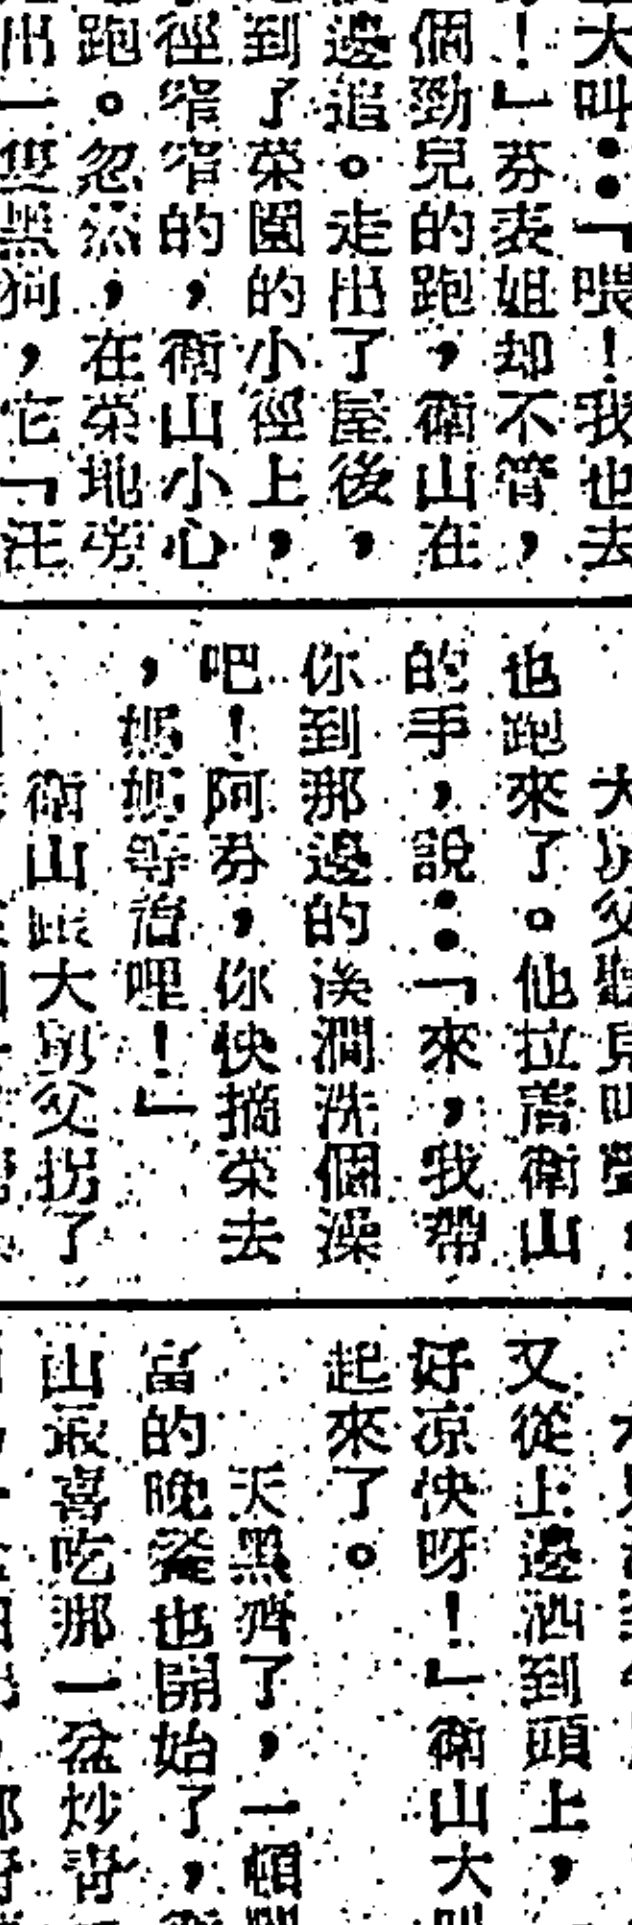 大叫：「喂！我也去
！」芬表姐却不管，
個勁兒的跑，衛山在
邊追。走出了屋後，
到了菜園的小徑上，
徑窄窄的，衛山小心
跑。忽然，在菜地旁
出一隻黑狗，它「汪
大舅父聽見叫聲，
也跑來了。他拉着衛山
的手，說：「來，我帶
你到那邊的溪澗洗個澡
吧！阿芬，你快摘菜去
，媽媽等着哩！」
衛山跟大舅父拐了
又從上邊洒到頭上，
好凉快呀！」衛山大叫
起來了。
天黑齊了，一頓
富的晚餐也開始了，衛
山最喜吃那一盆炒青